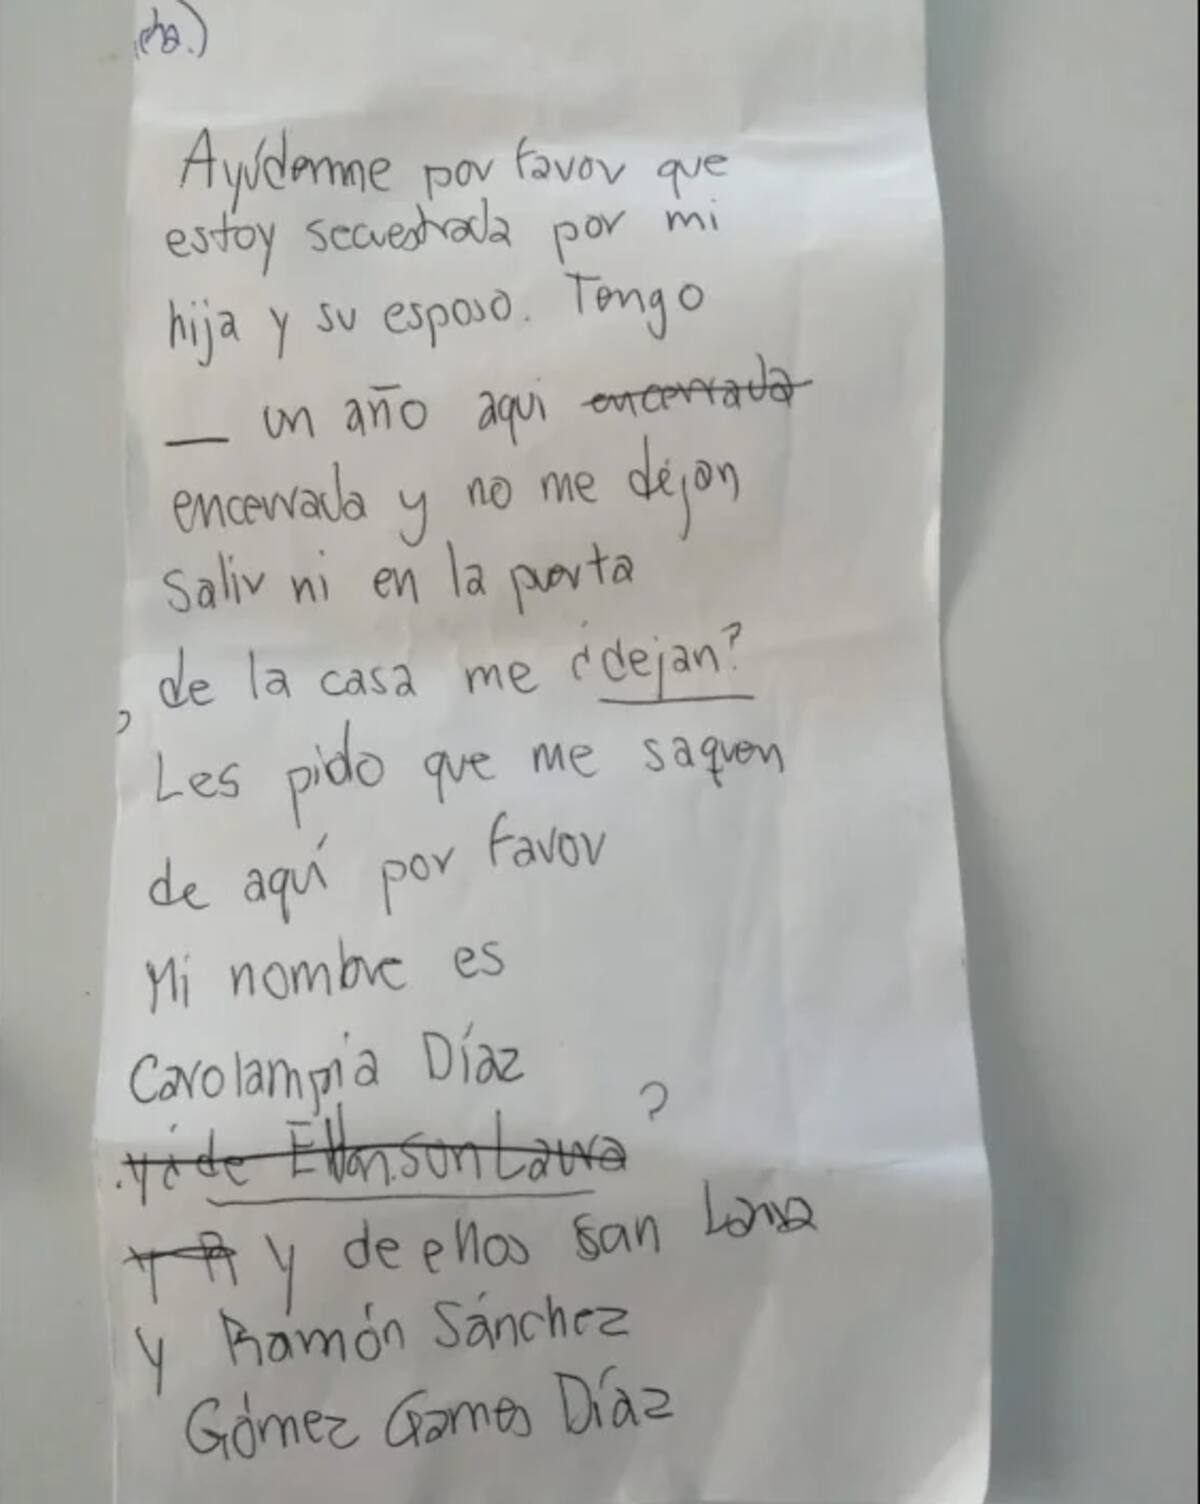 Ayúdenme por favor que
estoy secuestrada por mi
hija y su esposo. Tengo
__ un año aqui encerrada
encerrada y no me dejan
salir ni en la puerta
de la casa me ¿dejan?
Les pido que me saquen
de aquí por favor
Mi nombre es
Carolampia Díaz
?
y de
y de ellos san
y Ramón Sánchez
Gómez Díaz